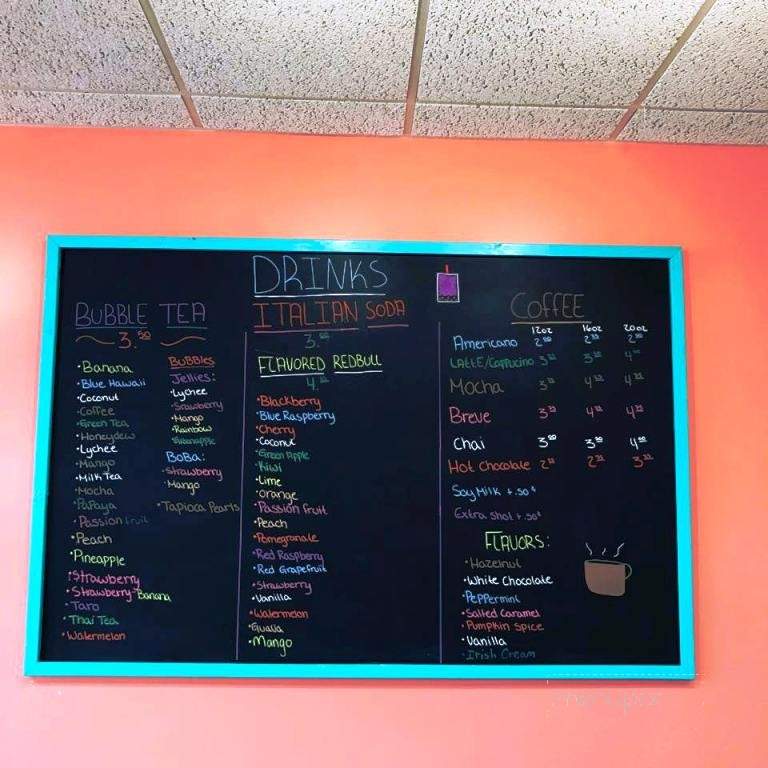 DRINKS
BUBBLE TEA
3.50
• Banana
• Blue Hawaii
• Coconut
• Coffee
• Green Tea
• Honeydew
• Lychee
• Mango
• Milk Tea
• Mocha
• Papaya
• Passion fruit
• Peach
• Pineapple
• Strawberry
• Strawberry-Banana
• Taro
• Thai Tea
• Watermelon
Bubbles
Jellies:
• Lychee
• Strawberry
• Mango
• Rainbow
BoBa:
• Strawberry
• Mango
• Tapioca Pearls
ITALIAN SODA
3.
FLAVORED REDBULL
4.
• Blackberry
• Blue Raspberry
• Cherry
• Coconut
• Green Apple
• Kiwi
• Lime
• Orange
• Passion fruit
• Peach
• Pomegranate
• Red Raspberry
• Red Grapefruit
• Strawberry
• Vanilla
• Watermelon
• Guava
• Mango
COFFEE
12oz 16oz 20oz
Americano
LATTE/Cappucino
Mocha
Breve
Chai
Hot Chocolate
Soy Milk +.50¢
Extra Shot +.50¢
FLAVORS:
• Hazelnut
• White Chocolate
• Peppermint
• Salted Caramel
• Pumpkin Spice
• Vanilla
• Irish Cream